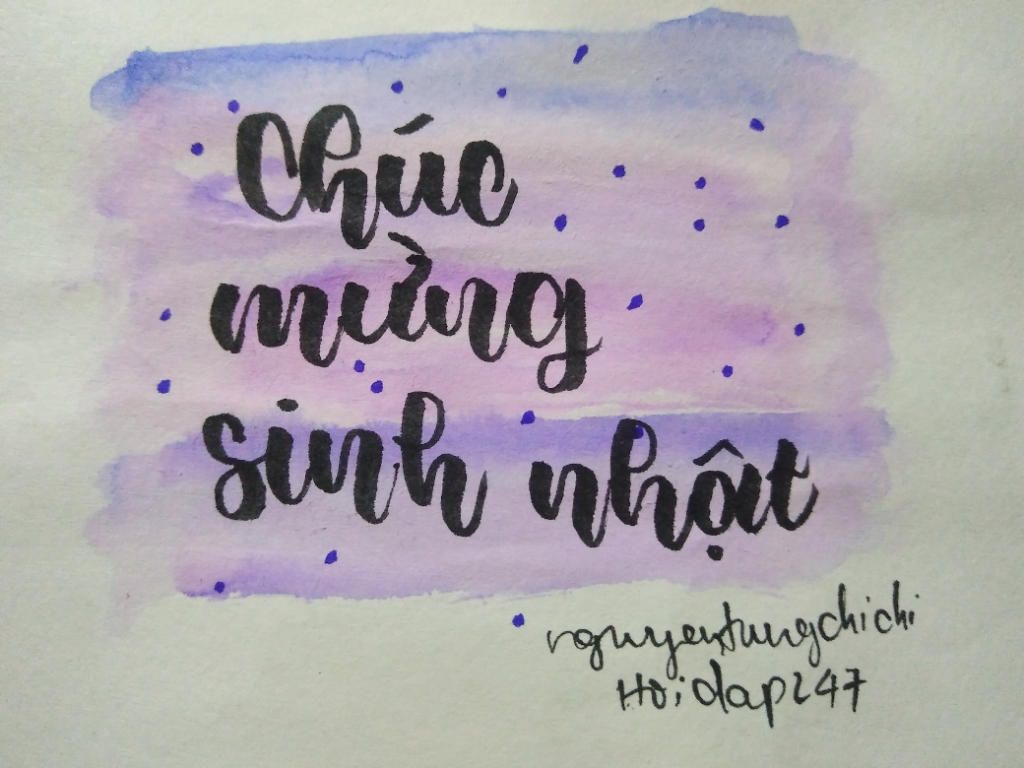 Chúc
mừng
sinh nhật
nguyentungchichi
Hoidap247